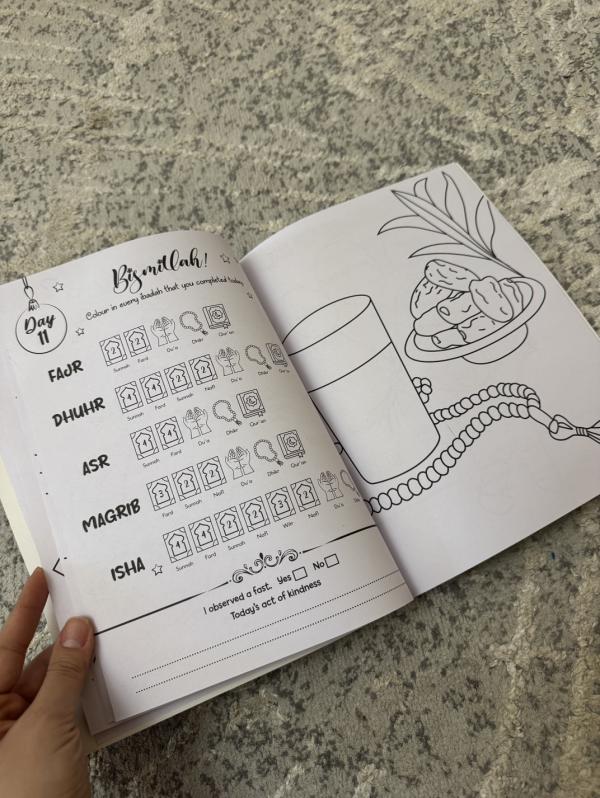 Bismillah!
Colour in every ibadah that you completed today
Day
11
FAJR
2 2
Sunnah Fard Du'a Dhikr Qur'an
DHUHR
4 4 2 2
Sunnah Fard Sunnah Nafl Du'a Dhikr Qur'an
ASR
4 4
Sunnah Fard Du'a Dhikr Qur'an
MAGRIB
3 2 2
Fard Sunnah Nafl Du'a Dhikr Qur'an
ISHA
4 4 2 2 3 2
Sunnah Fard Sunnah Nafl Witr Nafl Du'a
I observed a fast. Yes No
Today's act of kindness